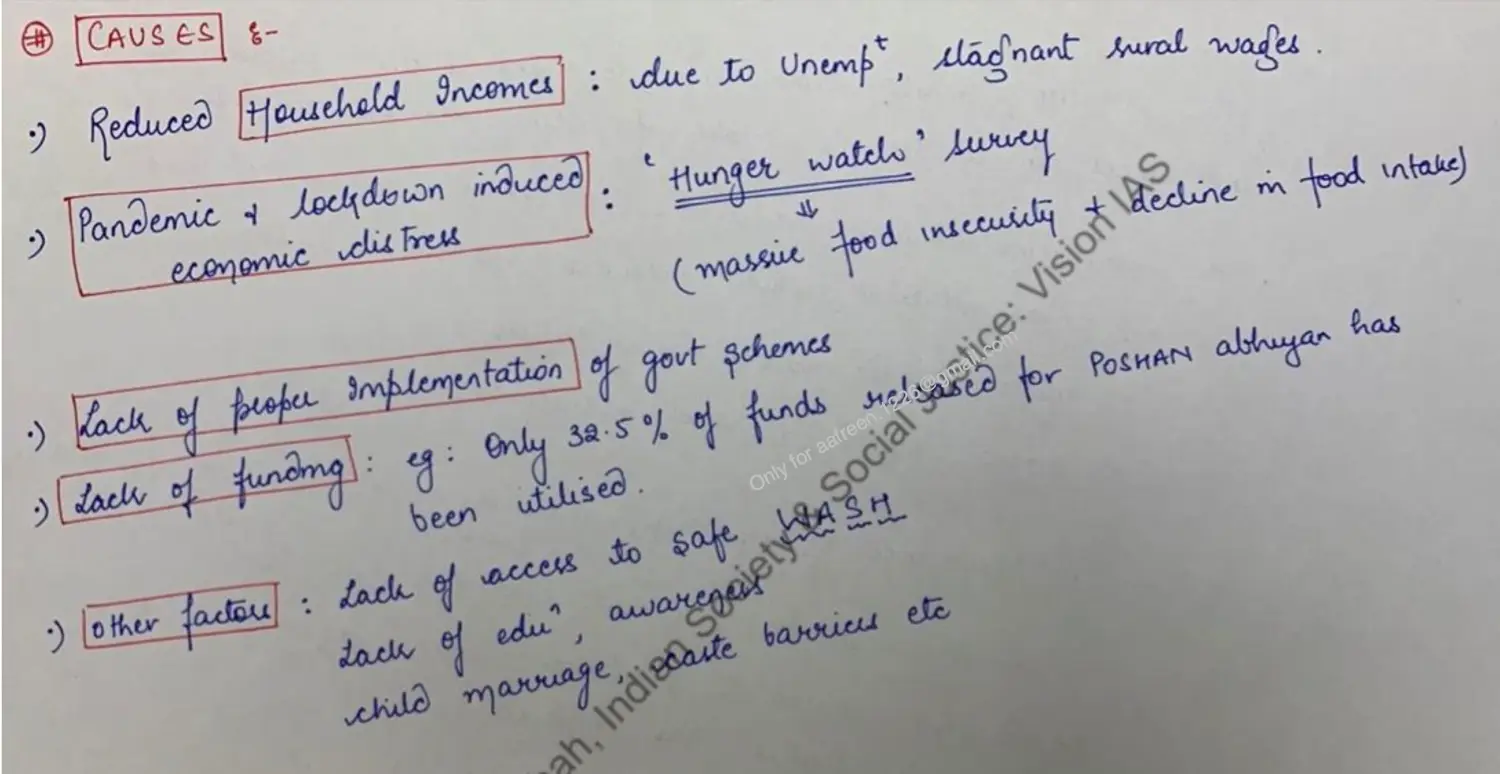 # CAUSES :-
•) Reduced Household Incomes : due to Unempᵗ, stagnant rural wages.
•) Pandemic & lockdown induced economic distress : 'Hunger watch' survey
⇓
(massive food insecurity + decline in food intake)
•) Lack of proper implementation of govt schemes
•) Lack of funding : eg : Only 32.5% of funds released for POSHAN abhiyan has
been utilised.
•) other factors : Lack of access to safe WASH
Lack of eduⁿ, awareness
child marriage, caste barriers etc
Indian Society & Social Justice: Vision IAS